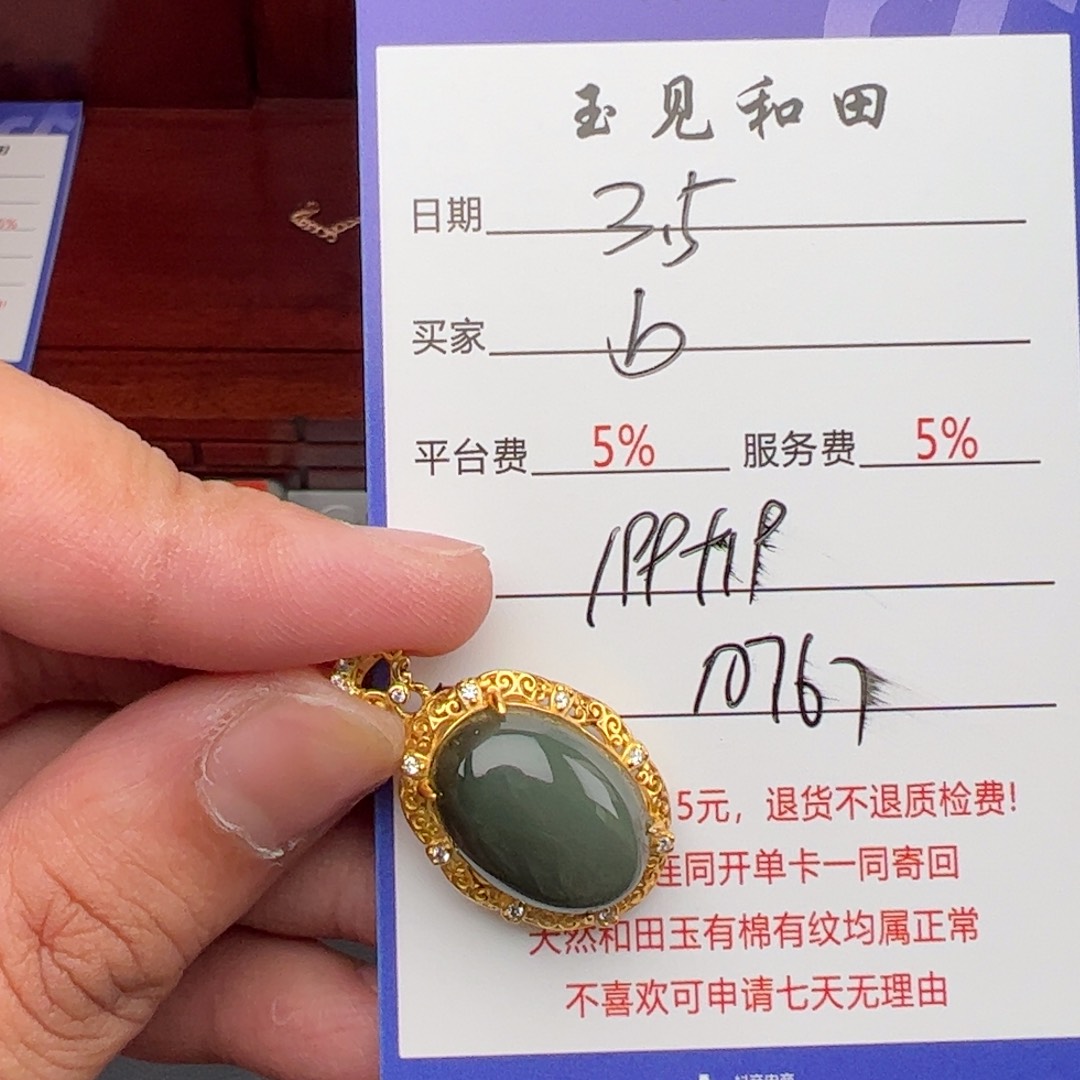 玉见和田
日期 3.5
买家 b
平台费 5% 服务费 5%
5元，退货不退质检费！
连同开单卡一同寄回
天然和田玉有棉有纹均属正常
不喜欢可申请七天无理由